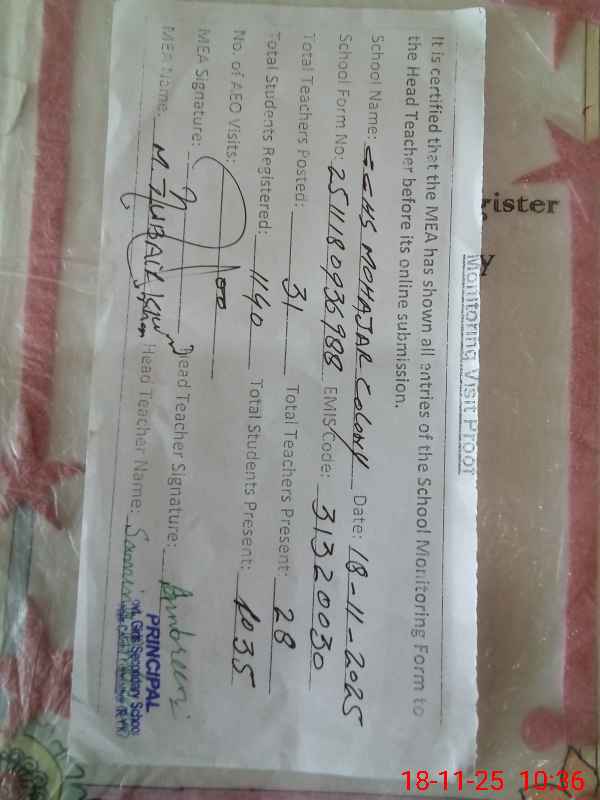 Monitoring Visit Proof
It is certified that the MEA has shown all entries of the School Monitoring Form to
the Head Teacher before its online submission.
School Name: GGHS MOHAJAR Colony Date: 18-11-2025
School Form No: 2511180936988 EMIS Code: 31320030
Total Teachers Posted: 31 Total Teachers Present: 28
Total Students Registered: 1190 Total Students Present: 1035
No. of AEO Visits: 00
MEA Signature: Head Teacher Signature: Ambreen
MEA Name: M. ZUBAIR Khan Head Teacher Name:
PRINCIPAL
Govt. Girls Secondary School
gister
y
18-11-25 10:36